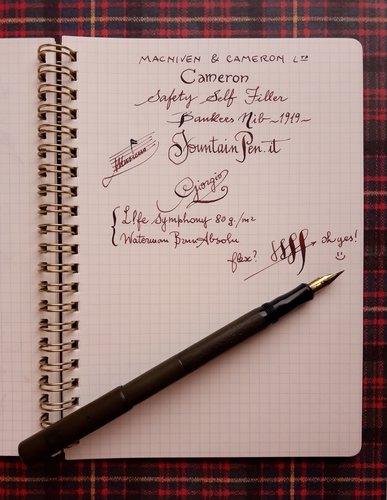 MACNIVEN & CAMERON LTD
Cameron
Safety Self Filler
Bankers Nib ~1919~
Musicus
FountainPen.it
Giorgio
LIfe Symphony 80 g./m²
Waterman Brun Absolu
flex? ffff → oh yes!